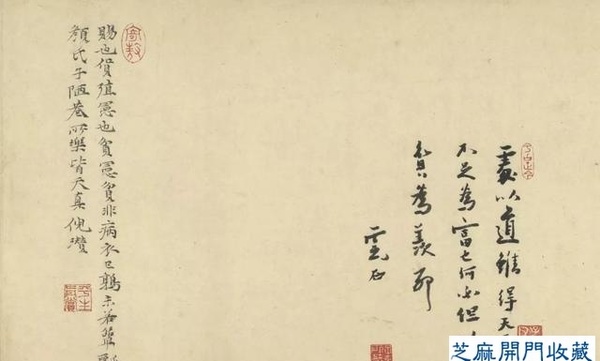 處以道雖得天
不足為富也何但
為羨耶
雲石
賜也貨殖憲也貧憲貧非病衣已鶉未若簞
顏氏子陋巷所樂皆天真倪瓚
芝麻開門收藏